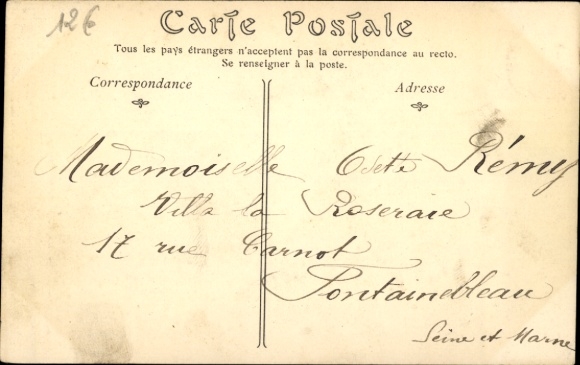 12€
Carte Postale
Tous les pays étrangers n'acceptent pas la correspondance au recto.
Se renseigner à la poste.
Correspondance
Adresse
Mademoiselle Osette Rémy
Villa la Roseraie
17 rue Carnot
Fontainebleau
Seine et Marne